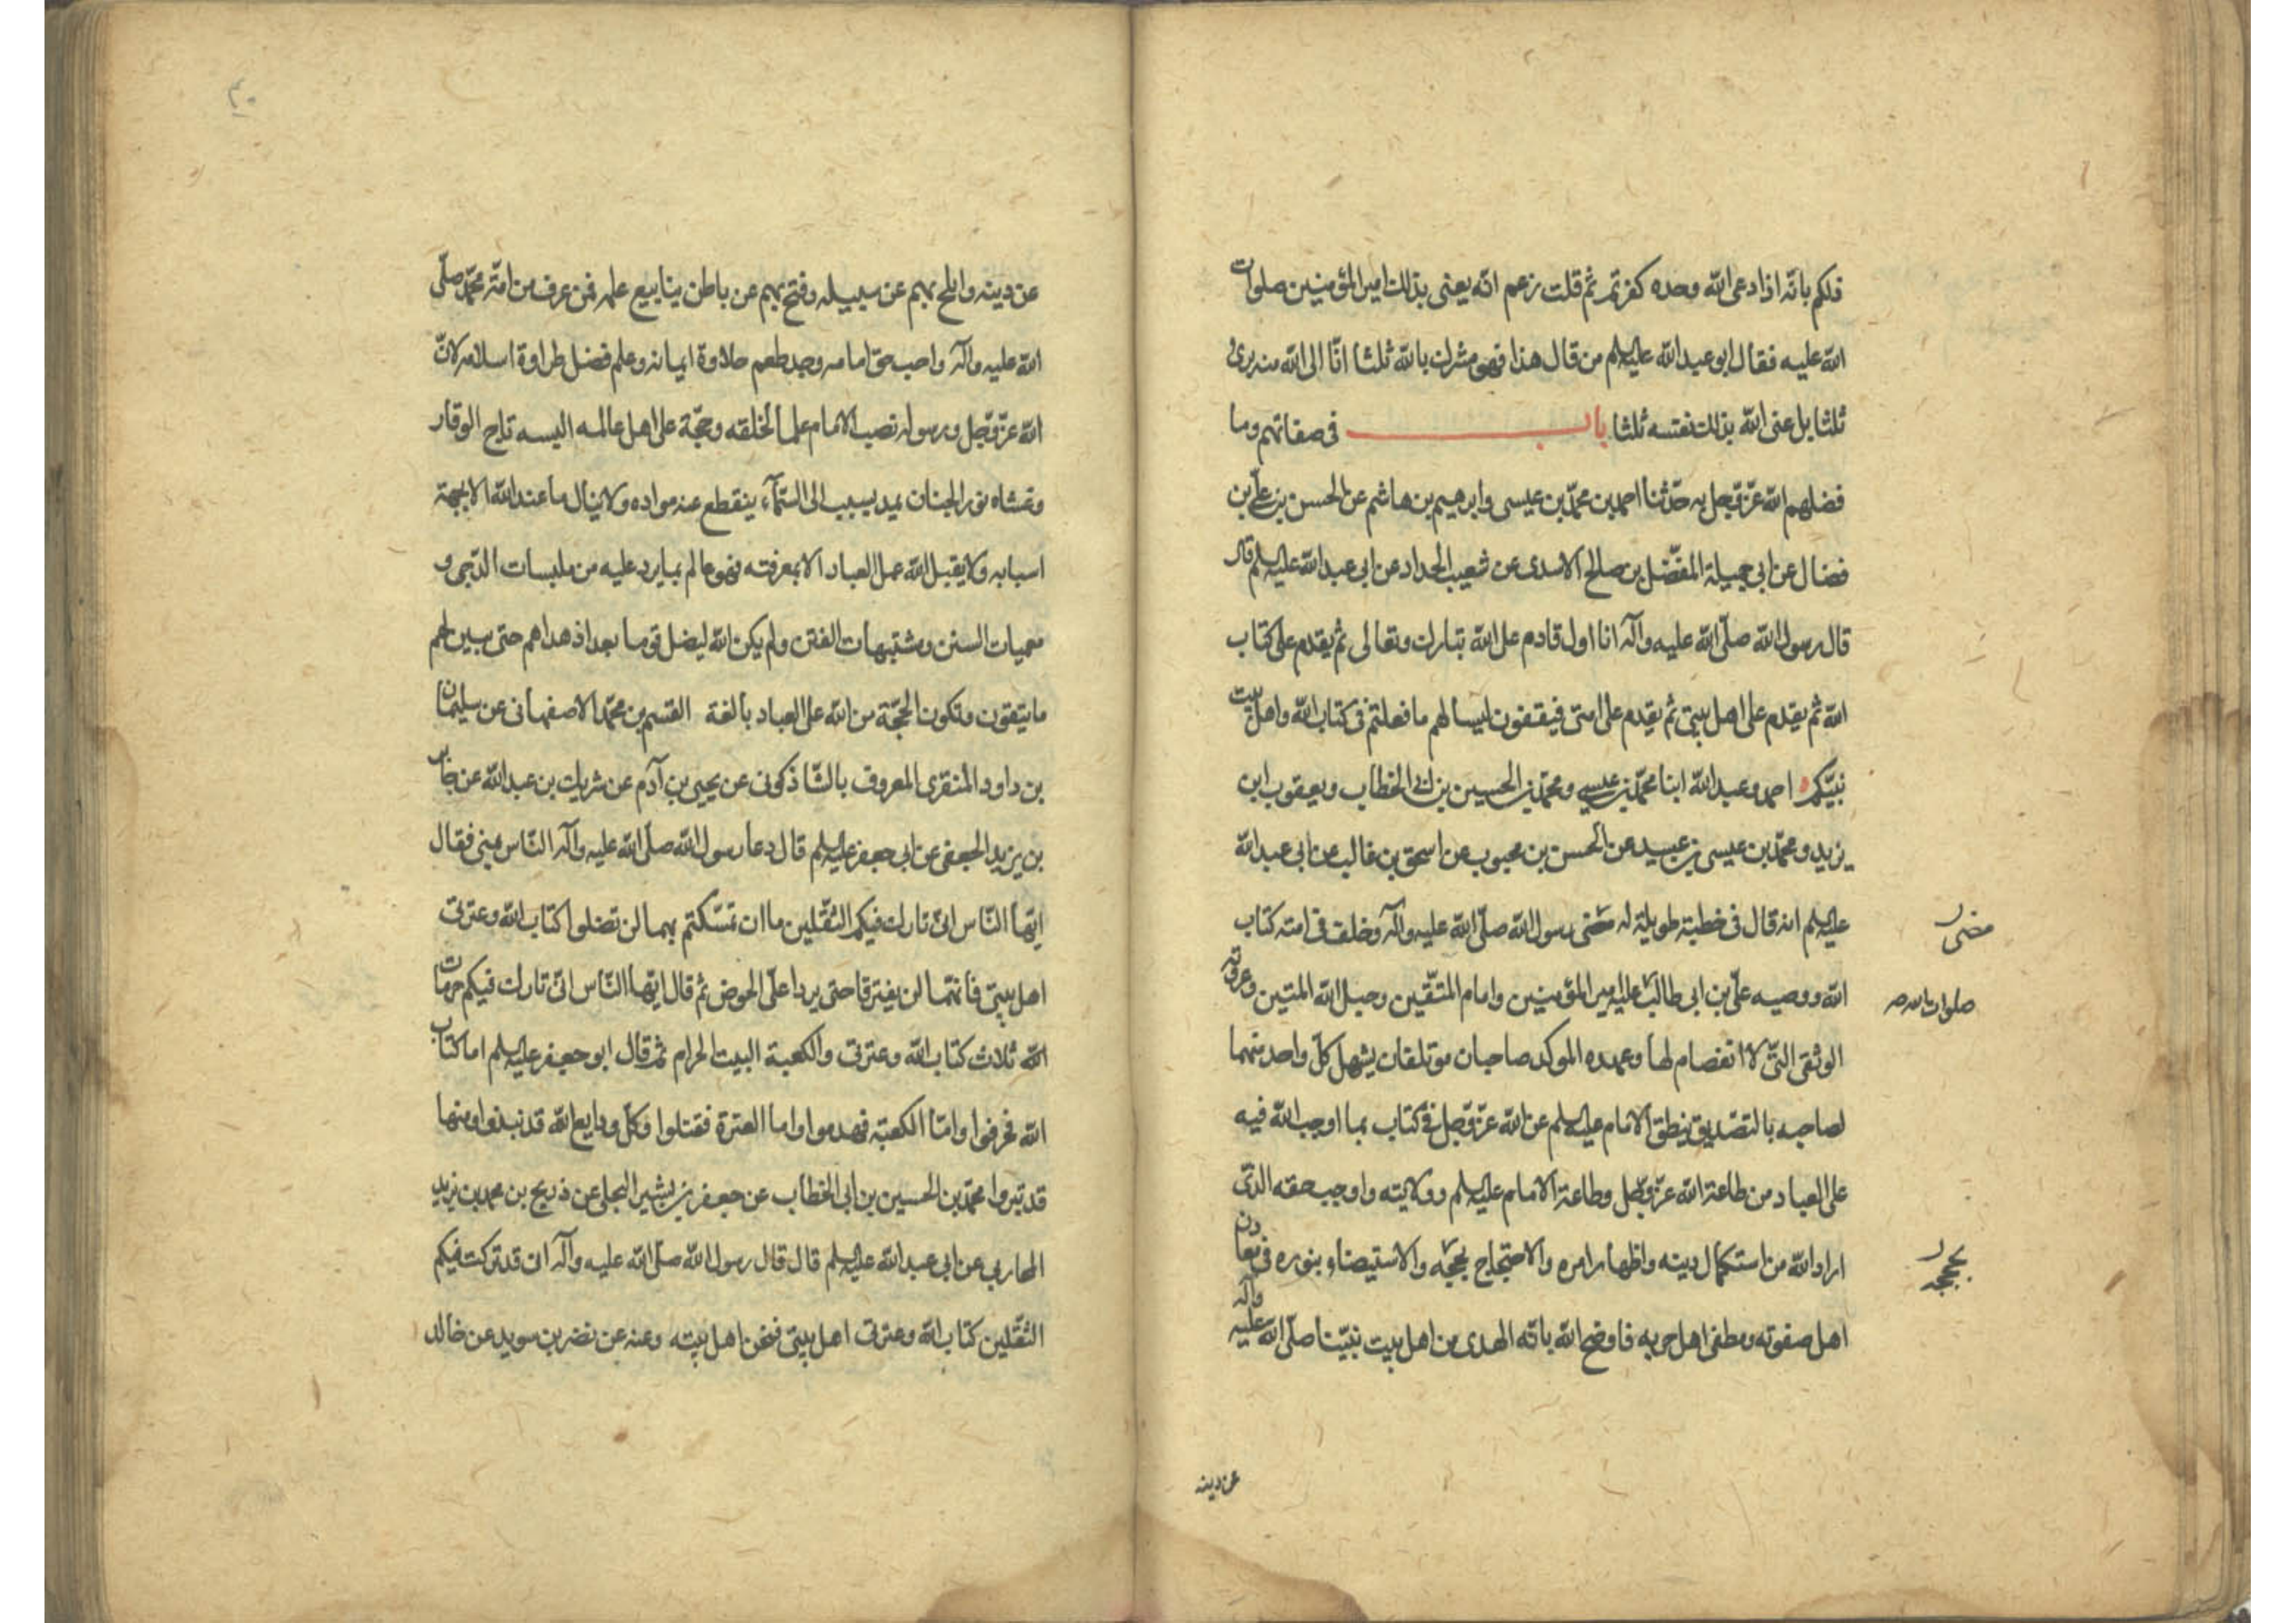 ذلكم بانه اذا دعی الله وحده كفرتم ثم قلت زعم انه يعنی بذلك امير المؤمنين صلوات
الله عليه فقال ابو عبد الله عليه السلم من قال هذا فهو مشرك بالله ثلثا انا الی الله منه برئ
ثلثا بل عنی الله بذلك نفسه ثلثا باب فی صفاتهم وما
فضلهم الله عزّ وجل به حدّثنا احمد بن محمّد بن عيسی وابرهيم بن هاشم عن الحسن بن علیّ بن
فضال عن ابی جميلة المفضّل بن صالح الاسدی عن شعيب الحداد عن ابی عبد الله عليه السلم قال
قال رسول الله صلّی الله عليه وآله انا اول قادم علی الله تبارك وتعالی ثم يقدم علی كتاب
الله ثم يقدم علی اهل بيتی ثم يقدم علی امتی فيقفون ليسالهم ما فعلتم فی كتاب الله واهل بيت
نبيّكم احمد وعبد الله ابنا محمّد بن عيسی ومحمّد بن الحسين بن ابی الخطاب ويعقوب ابن
يزيد ومحمّد بن عيسی بن عبيد عن الحسن بن محبوب عن اسحق بن غالب عن ابی عبد الله
عليه السلم انه قال فی خطبة طويلة له مضی رسول الله صلّی الله عليه وآله وخلف فی امته كتاب
مضی
الله ووصيه علیّ بن ابی طالب عليه امير المؤمنين وامام المتّقين وحبل الله المتين وعروته
صلوات الله
الوثقی التی لا انفصام لها وعهده الموكد صاحبان موتلفان يشهد كلّ واحد منهما
لصاحبه بالتصديق ينطق الامام عليه السلم عن الله عزّ وجل فی كتاب بما اوجب الله فيه
علی العباد من طاعة الله عزّ وجل وطاعة الامام عليه السلم وولايته واوجب حقه الذی
اراد الله من استكمال دينه واظهار امره والاحتجاج بحججه والاستيضاء بنوره فی معادن
بحججه
اهل صفوته ومصطفی اهل حربه فاوضح الله باته الهدی من اهل بيت نبيّنا صلّی الله عليه وآله
عن دينه
٣٠
عن دينه وابلج بهم عن سبيله وفتح بهم عن باطن ينابيع علمه فمن عرف من امّة محمّد صلّی
الله عليه وآله واجب حق امامه وجد طعم حلاوة ايمانه وعلم فضل طراوة اسلامه لانّ
الله عزّ وجل ورسوله نصب الامام علما لخلقه وحجّة علی اهل عالمه البسه تاج الوقار
وغشاه نور الجنان يمد بسبب الی السّمآء ينقطع عنه مواده ولا ينال ما عند الله الا بجهة
اسبابه ولا يقبل الله عمل العباد الا بمعرفته فهو عالم بما يرد عليه من ملبسات الدّجی و
معميات السنن ومشتبهات الفتن ولم يكن الله ليضل قوما بعد اذ هداهم حتی يبين لهم
ما يتقون وتكون الحجّة من الله علی العباد بالغة القسم بن محمّد الاصفهانی عن سليمان
بن داود المنقری المعروف بالشّاذكونی عن يحيی بن آدم عن شريك بن عبد الله عن جابر
بن يزيد الجعفی عن ابی جعفر عليه السلم قال دعا رسول الله صلّی الله عليه وآله النّاس بمنی فقال
ايّها النّاس انّی تارك فيكم الثقلين ما ان تمسّكتم بهما لن تضلوا كتاب الله وعترتی
اهل بيتی فانّهما لن يفترقا حتی يردا علیّ الحوض ثم قال ايّها النّاس انّی تارك فيكم حرمات
الله ثلاث كتاب الله وعترتی والكعبة البيت الحرام ثم قال ابو جعفر عليه السلم اما كتاب
الله فحرفوا وامّا الكعبة فهدموا واما العترة فقتلوا وكلّ ودايع الله قد نبذوا ومنها
قد تبروا محمّد بن الحسين بن ابی الخطاب عن جعفر بن بشير البجلی عن ذريح بن محمد بن يزيد
المحاربی عن ابی عبد الله عليه السلم قال قال رسول الله صلّی الله عليه وآله انی قد تركت فيكم
الثقلين كتاب الله وعترتی اهل بيتی فنحن اهل بيته وعنه عن نضر بن سويد عن خالد